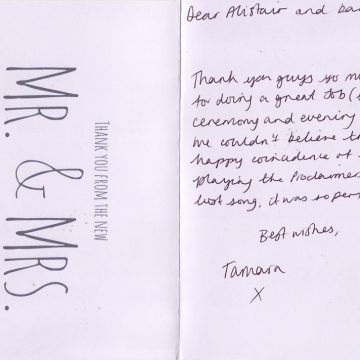 THANK YOU FROM THE NEW
MR. & MRS.
Dear Alistair and
Thank you guys so
for doing a great job
ceremony and evening
We couldn't believe
happy coincidence of
playing the Proclaimers
last song, it was so
Best wishes,
Tamara
X